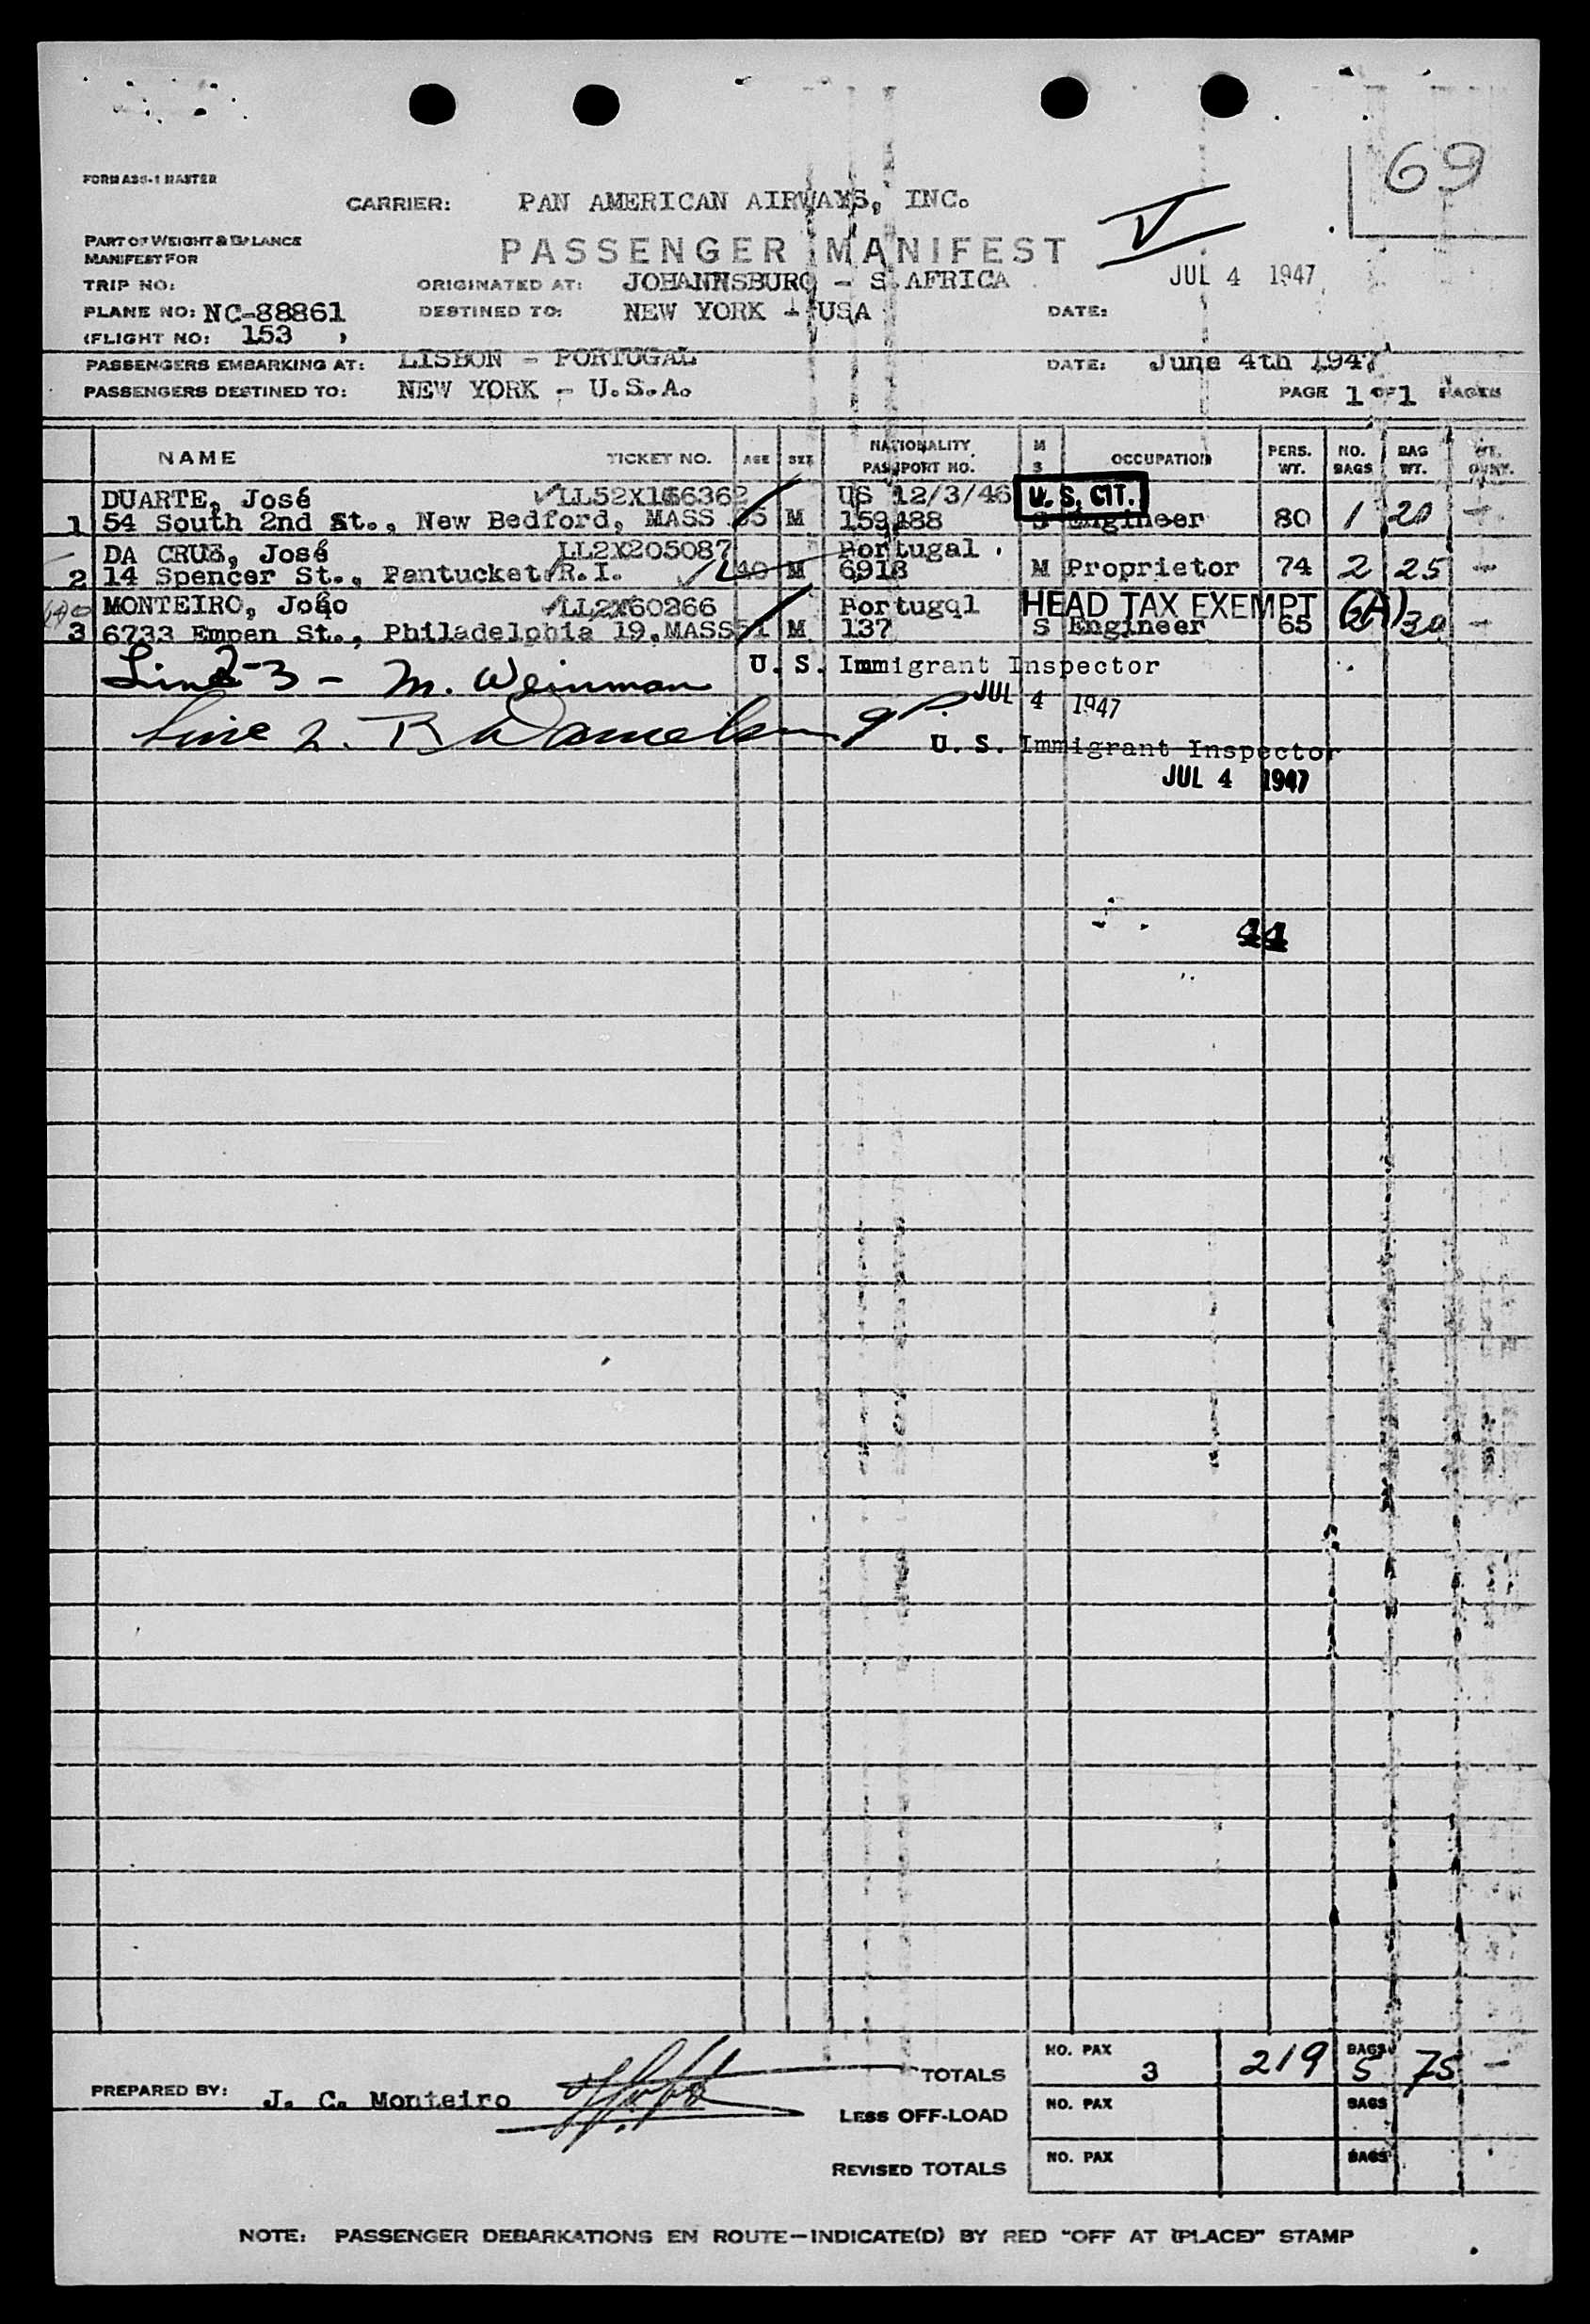 69
FORM ASS-1 MASTER
CARRIER: PAN AMERICAN AIRWAYS, INC.
V
PART OF WEIGHT & BALANCE
MANIFEST FOR
PASSENGER MANIFEST
JUL 4 1947
TRIP NO: ORIGINATED AT: JOHANNSBURG - S.AFRICA
PLANE NO: NC-88861 DESTINED TO: NEW YORK - USA DATE:
(FLIGHT NO: 153 )
PASSENGERS EMBARKING AT: LISBON - PORTUGAL DATE: June 4th 1947
PASSENGERS DESTINED TO: NEW YORK - U.S.A. PAGE 1 OF 1 PAGES
NAME TICKET NO. AGE SEX NATIONALITY PASSPORT NO. M S OCCUPATION PERS. WT. NO. BAGS BAG WT.
DUARTE, José US 12/3/46 U. S. CIT.
1 54 South 2nd St., New Bedford, MASS M 159488 S Engineer 80 1 20 -
DA CRUZ, José LL2X205087 Portugal
2 14 Spencer St., Pantucket R.I. 40 M 6918 M Proprietor 74 2 25 -
MONTEIRO, João LL2X60266 Portugql HEAD TAX EXEMPT
3 6733 Empen St., Philadelphia 19, MASS M 137 S Engineer 65 30 -
Line 2-3 - M. Weinman U. S. Immigrant Inspector
JUL 4 1947
Line 2.
U. S. Immigrant Inspector
JUL 4 1947
44
PREPARED BY: J. C. Monteiro TOTALS NO. PAX 3 219 BAGS 5 75 -
LESS OFF-LOAD NO. PAX BAGS
REVISED TOTALS NO. PAX BAGS
NOTE: PASSENGER DEBARKATIONS EN ROUTE—INDICATE(D) BY RED "OFF AT (PLACE)" STAMP